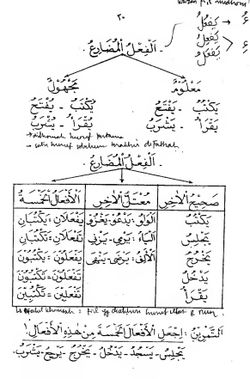 ٢٠
يَفْعُلُ
يَفْعِلُ
يَفْعَلُ
اَلْفِعْلُ الْمُضَارِعُ
مَعْلُوْمٌ مَجْهُوْلٌ
يَكْتُبُ - يَفْتَحُ يُكْتَبُ - يُفْتَحُ
يَقْرَأُ - يَشْرَبُ يُقْرَأُ - يُشْرَبُ
→ didhomah huruf pertama
→ satu huruf sebelum terakhir difathah
اَلْفِعْلُ الْمُضَارِعُ
صَحِيْحُ الْآخِرِ مُعْتَلُّ الْآخِرِ اَلْأَفْعَالُ الْخَمْسَةُ
يَكْتُبُ اَلْوَاوُ: يَدْعُوْ، يَغْزُوْ يَفْعَلَانِ = يَكْتُبَانِ
يَجْلِسُ اَلْيَاءُ: يَرْمِيْ - يَزْنِيْ تَفْعَلَانِ = تَكْتُبَانِ
يَخْرُجُ اَلْأَلِفُ: يَرْضَى - يَنْهَى يَفْعَلُوْنَ = يَكْتُبُوْنَ
يَدْخُلُ تَفْعَلُوْنَ = تَكْتُبُوْنَ
يَقْرَأُ تَفْعَلِيْنَ = تَكْتُبِيْنَ
اَلتَّمْرِيْنُ: اِجْعَلِ الْأَفْعَالَ الْخَمْسَةَ مِنْ هٰذِهِ الْأَفْعَالِ!
يَجْلِسُ - يَسْجُدُ - يَدْخُلُ - يَخْرُجُ - يَرْجِعُ - يَشْرَبُ.